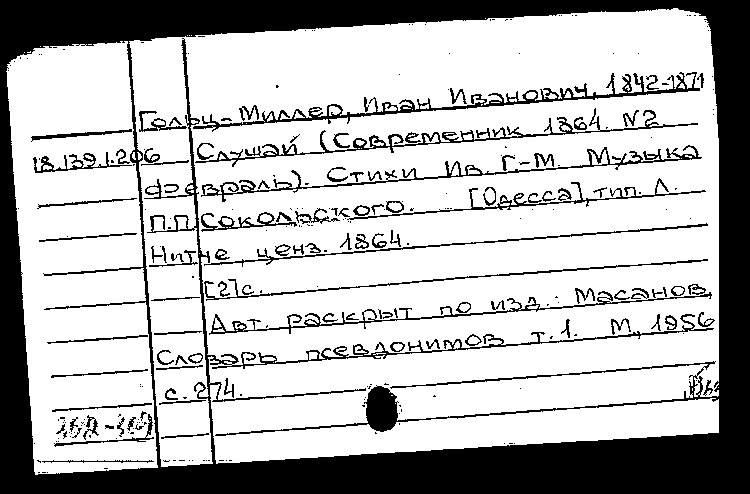 Гольц-Миллер, Иван Иванович, 1842-1871
18.139.1.206 Слушай (Современник 1864. N2
февраль). Стихи Ив. Г.-М. Музыка
П.П.Сокольского. [Одесса], тип. Л.
Нитче, ценз. 1864.
[2]с.
Авт. раскрыт по изд.: Масанов,
Словарь псевдонимов т.1. М, 1956
с. 274.